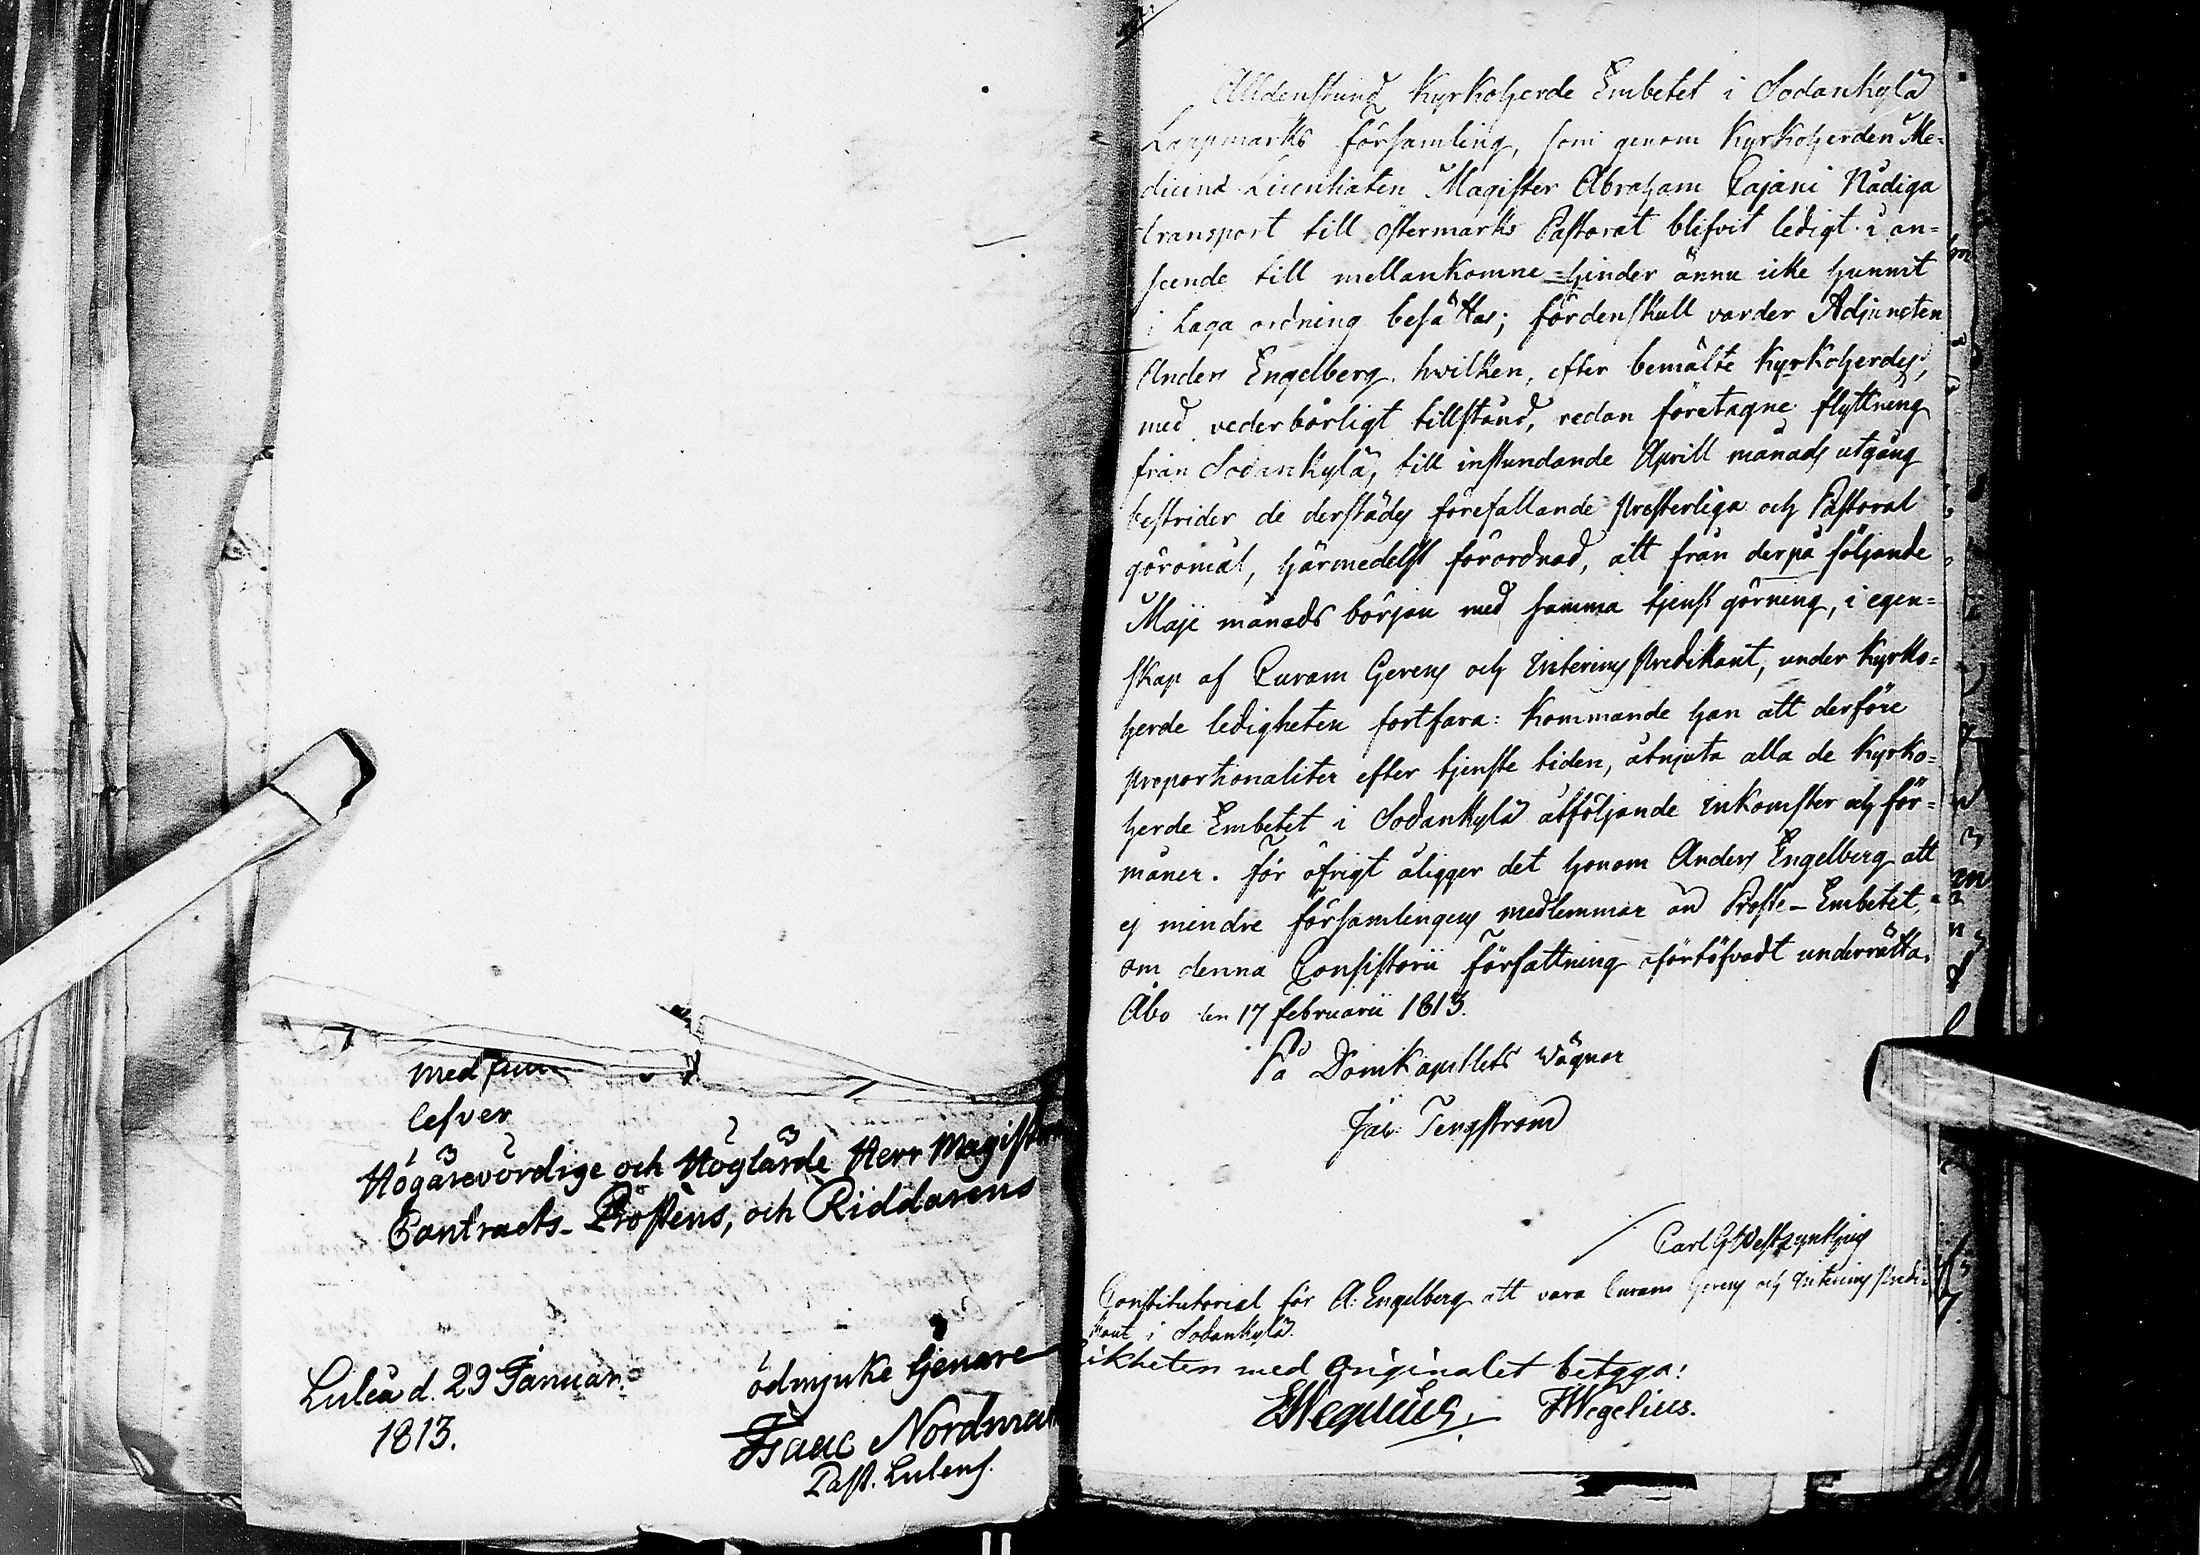 med
lefver
Högärevördige och Höglärde Herr Magistern
Contracts-Prostens, och Riddarens
Luleå d. 29 Januar.
1813.
ödmjuke tjenare
Isaac Nordman
Past. Lulens.
Alldenstund Kyrkoherde Embetet i Sodankylä
Lappmarks Församling, som genom Kyrkoherden Me-
dicinæ Licentiaten Magister Abraham Cajani Nådiga
transport till Östermarks Pastorat blifvit ledigt i an-
seende till mellankomne hinder ännu icke hunnit
i Laga ordning besättas; fördenskull varder Adjuncten
Anders Engelberg, hvilken, efter bemälte Kyrkoherdes,
med vederbörligt tillstånd, redan företagne flyttning
från Sodankylä, till instundande Aprill månads utgång
bestrider de derstädes förefallande presterliga och Pastoral
göromål, härmedelst förordnad, att från derpå följande
Maji månads början med samma tjenst görning, i egen-
skap af Curam Gerens och Interims Predikant, under Kyrko-
herde ledigheten fortfara: Kommande han att derföre
proportionaliter efter tjenste tiden, åtnjuta alla de Kyrko-
herde Embetet i Sodankylä åtföljande inkomster och för-
måner. För öfrigt åligger det honom Anders Engelberg att
ej mindre församlingens medlemmar än Proste-Embetet,
om denna Consistorii Författning oförtöfvadt underrätta.
Åbo den 17 Februarii 1813.
På Domkapitlets Vägnar
Jac. Tengström
Carl G
Constitutorial för A: Engelberg att vara Curam Gerens och Interims Predi-
kant i Sodankylä.
Likheten med Originalet betyga:
EWegelius. JWegelius.